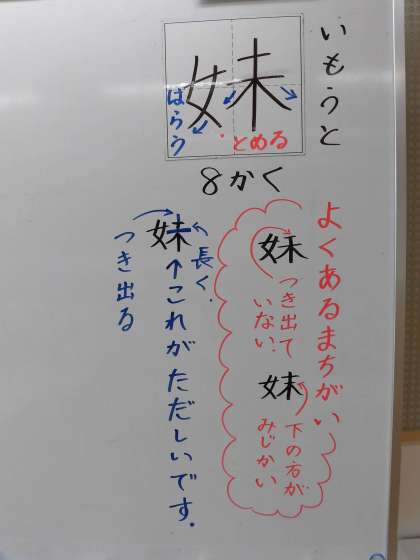 いもうと
妹
はらう
とめる
8かく
よくあるまちがい
妹
つき出て
いない.
妹
下の方が
みじかい
妹
長く.
つき出る
↑これがただしいです.